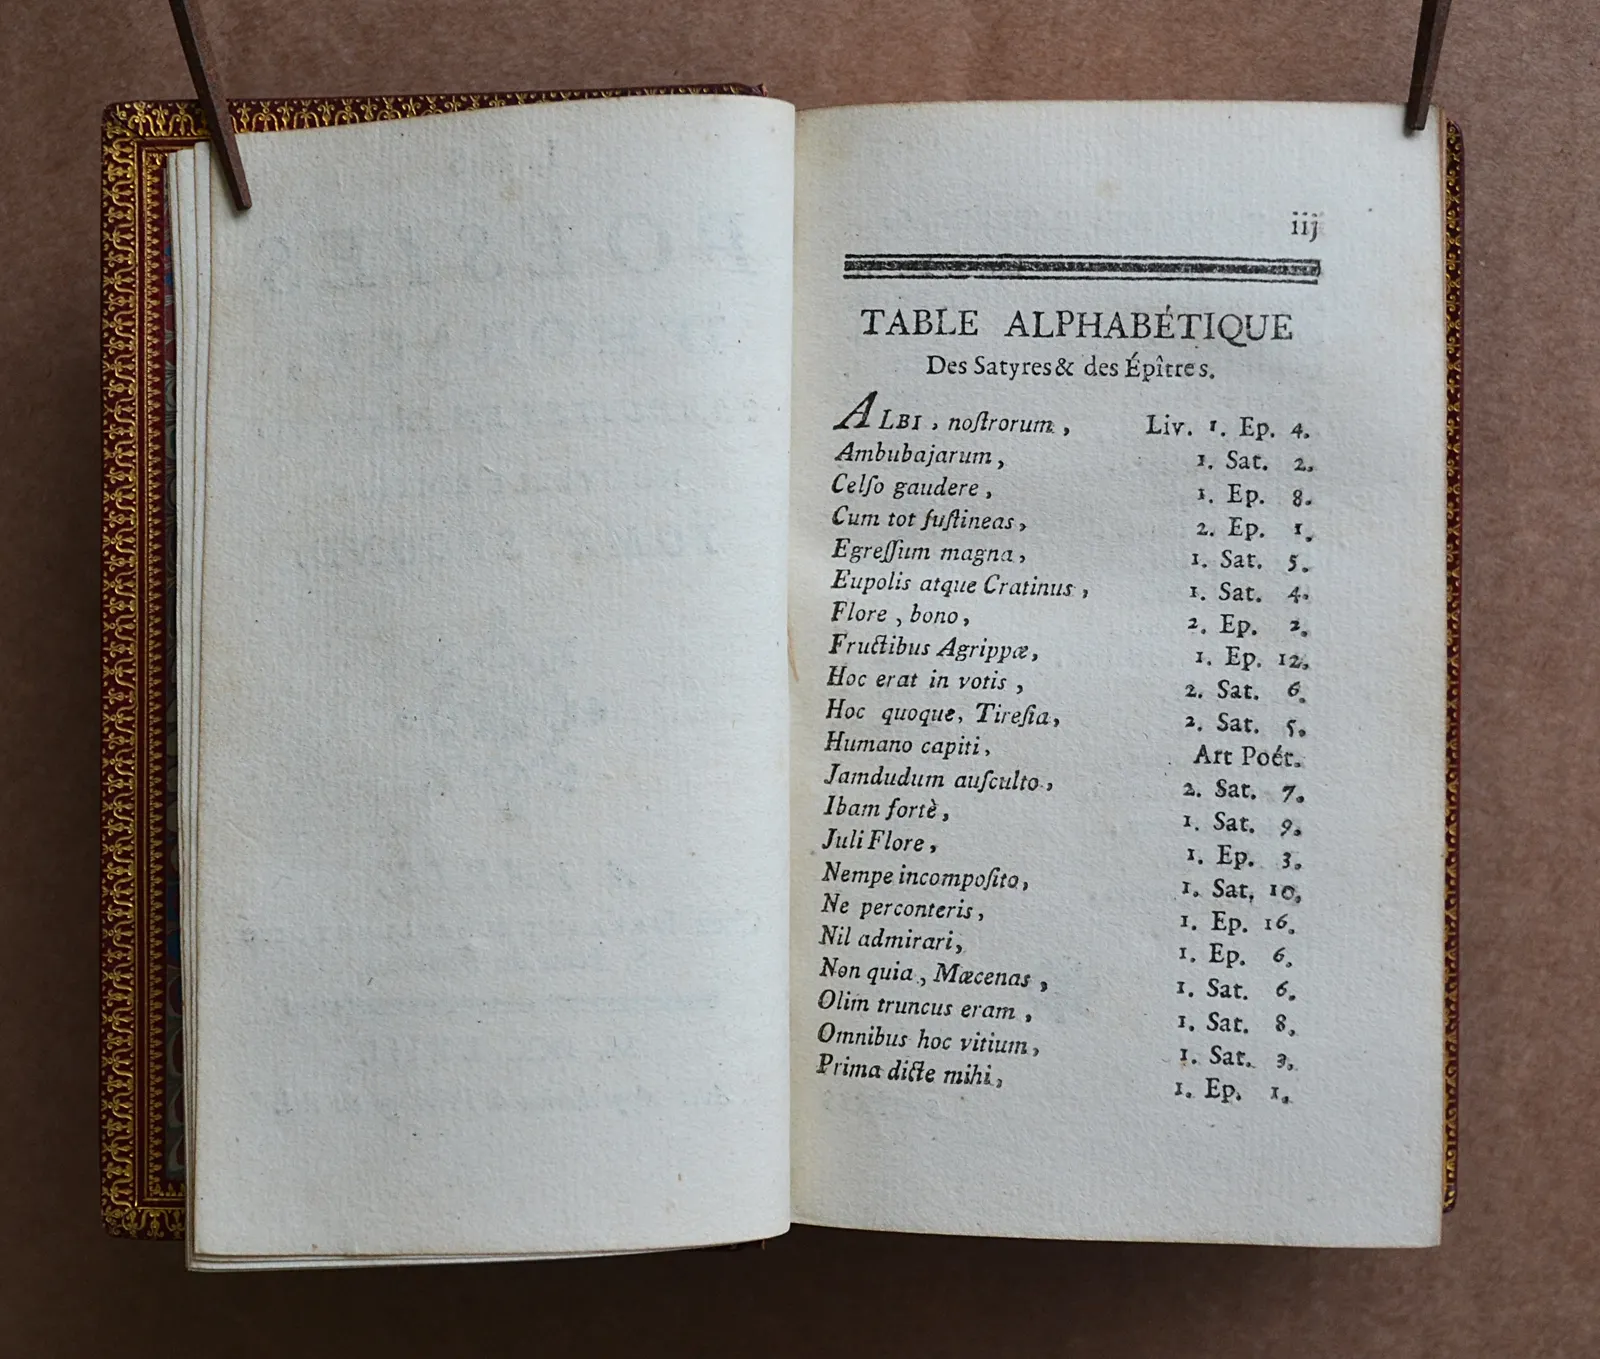 iij
TABLE ALPHABÉTIQUE
Des Satyres & des Épîtres.
ALBI, noſtrorum, Liv. 1. Ep. 4.
Ambubajarum, 1. Sat. 2.
Celſo gaudere, 1. Ep. 8.
Cum tot ſuſtineas, 2. Ep. 1.
Egreſſum magna, 1. Sat. 5.
Eupolis atque Cratinus, 1. Sat. 4.
Flore, bono, 2. Ep. 2.
Fructibus Agrippæ, 1. Ep. 12.
Hoc erat in votis, 2. Sat. 6.
Hoc quoque, Tireſia, 2. Sat. 5.
Humano capiti, Art Poét.
Jamdudum auſculto, 2. Sat. 7.
Ibam fortè, 1. Sat. 9.
Juli Flore, 1. Ep. 3.
Nempe incompoſito, 1. Sat. 10.
Ne perconteris, 1. Ep. 16.
Nil admirari, 1. Ep. 6.
Non quia, Mæcenas, 1. Sat. 6.
Olim truncus eram, 1. Sat. 8.
Omnibus hoc vitium, 1. Sat. 3.
Prima dicte mihi, 1. Ep. 1.